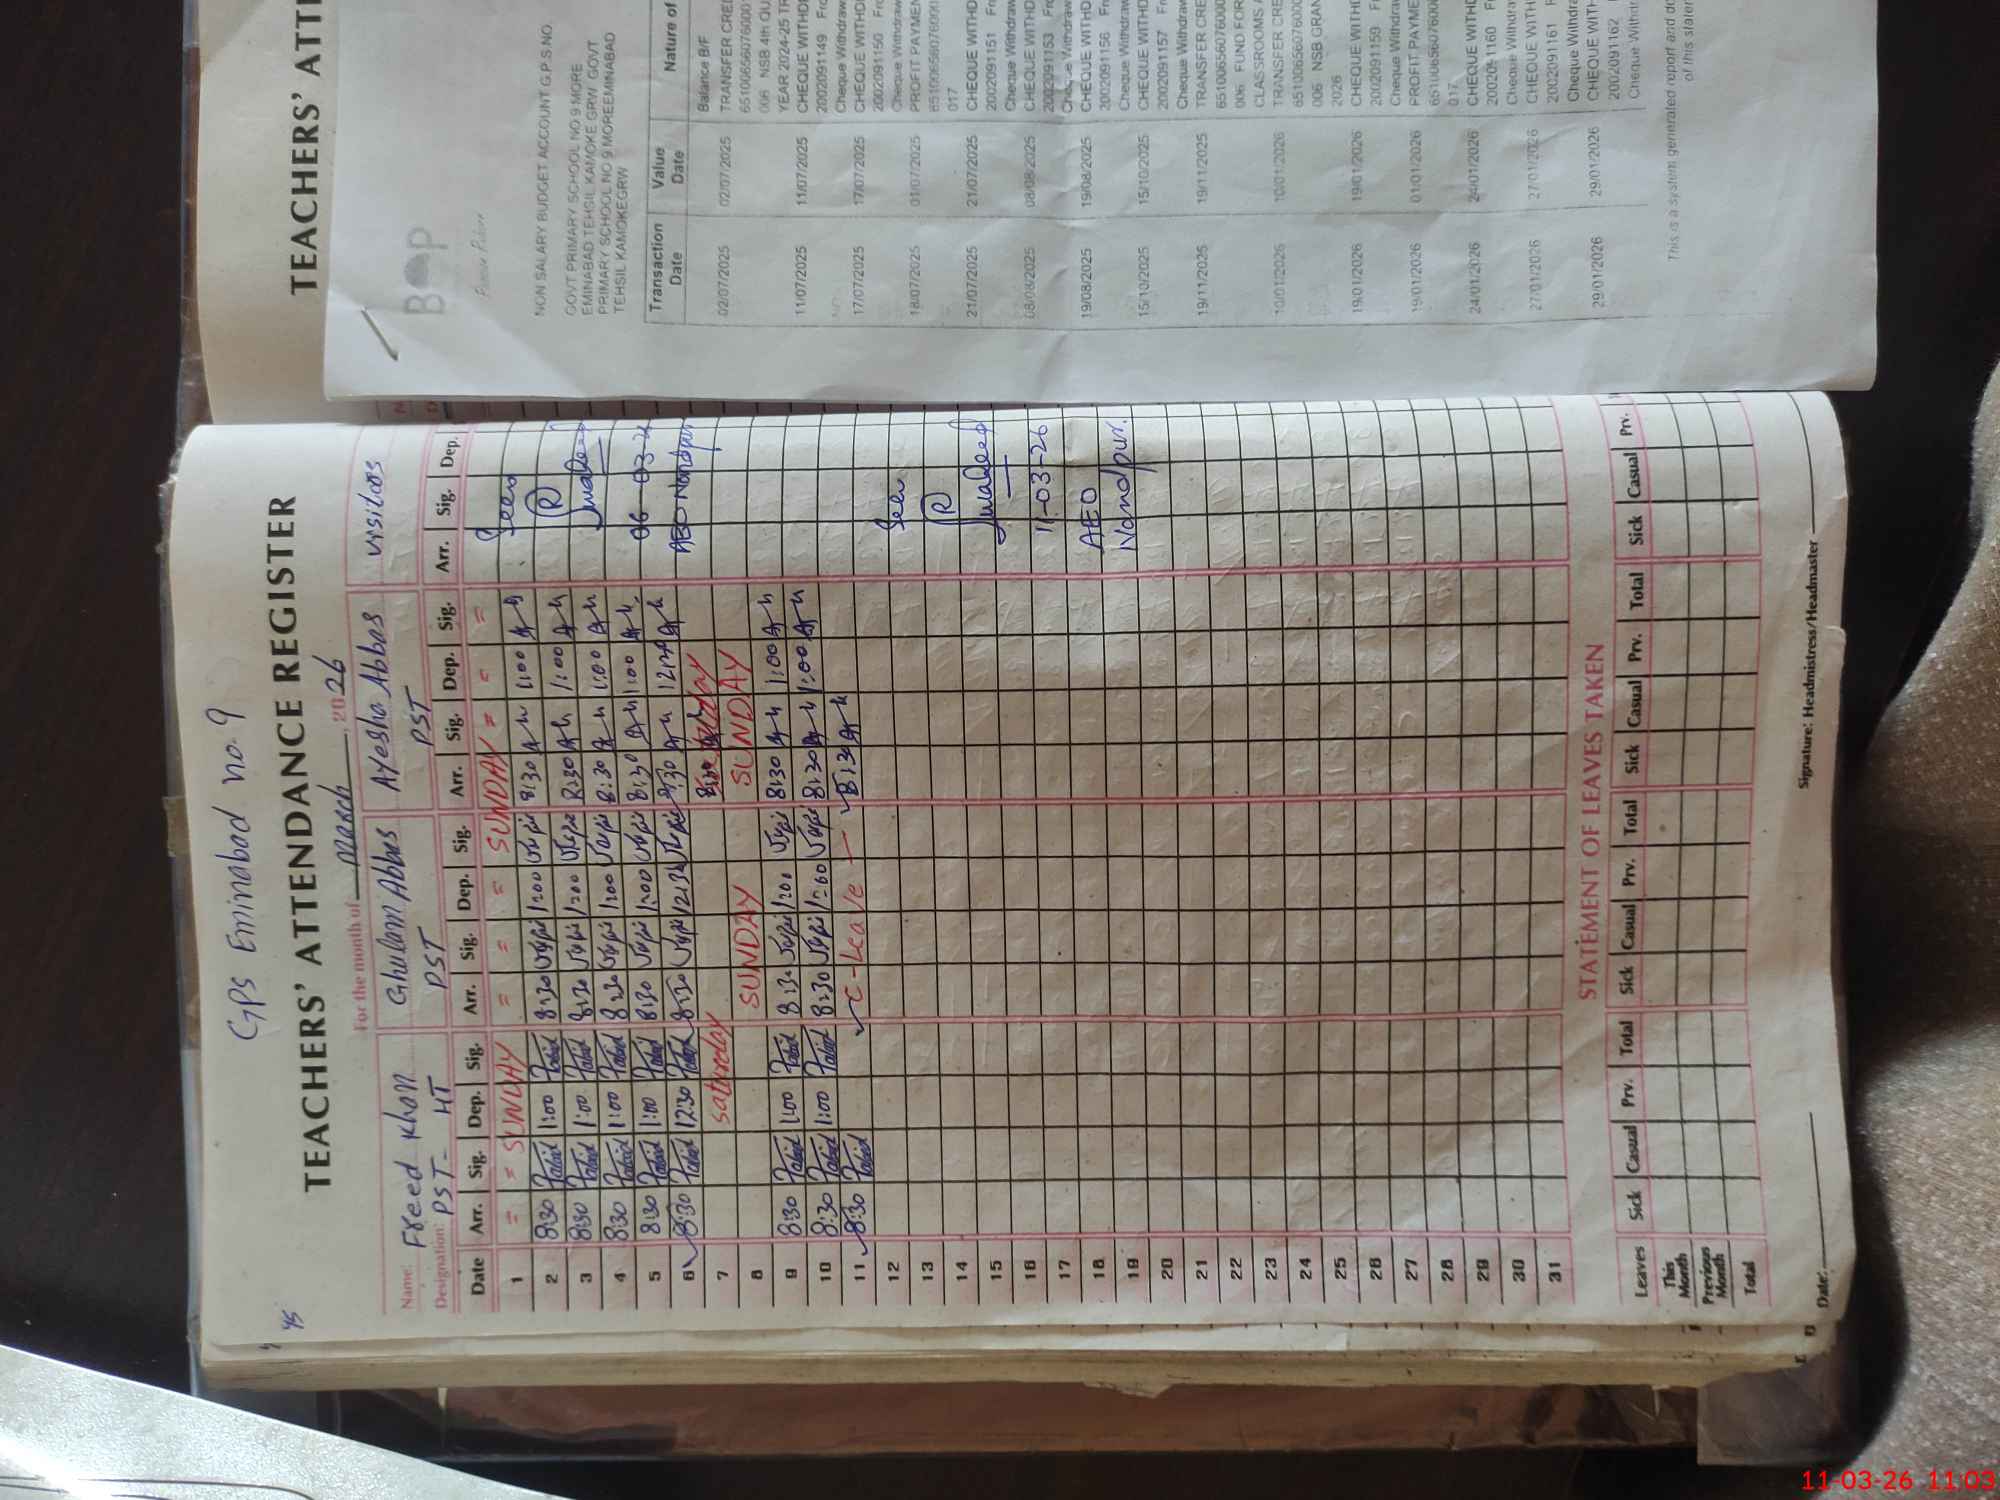 45
GPS Eminabad no. 9
TEACHERS' ATTENDANCE REGISTER
For the month of March, 2026
Name: Freed Khan Ghulam Abbas Ayesha Abbas visitors
Designation: PST - HT PST PST
Date Arr. Sig. Dep. Sig. Arr. Sig. Dep. Sig. Arr. Sig. Dep. Sig. Arr. Sig. Dep.
1 = = SUNDAY = = = SUNDAY = = = Seen
2 8:30 1:00 8:30 1:00 8:30 1:00
3 8:30 1:00 8:30 1:00 8:30 1:00
4 8:30 1:00 8:30 1:00 8:30 1:00
5 8:30 1:00 8:30 1:00 8:30 1:00 06-03-26
6 8:30 12:30 8:30 12:30 8:30 12:30 AEO Nandpur
7 saturday 8:30
8 SUNDAY SUNDAY
9 8:30 1:00 8:30 1:00 8:30 1:00
10 8:30 1:00 8:30 1:00 8:30 1:00
11 8:30 C-Leave 8:30
12 Seen
13
14
15
16 11-03-26
17
18 AEO
19 Nandpur.
20
21
22
23
24
25
26
27
28
29
30
31
STATEMENT OF LEAVES TAKEN
Leaves Sick Casual Prv. Total Sick Casual Prv. Total Sick Casual Prv. Total Sick Casual Prv.
This Month
Previous Month
Total
Date: Signature: Headmistress/Headmaster
TEACHERS' ATTE
BOP
NON SALARY BUDGET ACCOUNT G.P.S NO.
GOVT PRIMARY SCHOOL NO 9 MORE
EMINABAD TEHSIL KAMOKE GRW GOVT
PRIMARY SCHOOL NO 9 MOREEMINABAD
TEHSIL KAMOKEGRW
Transaction Date Value Date Nature of
Balance B/F
02/07/2025 02/07/2025 TRANSFER CRE
006 NSB 4th QU
YEAR 2024-25 TR
11/07/2025 11/07/2025 CHEQUE WITHD
2002091149 Fro
Cheque Withdraw
17/07/2025 17/07/2025 CHEQUE WITHD
2002091150 Fro
Cheque Withdraw
18/07/2025 01/07/2025 PROFIT PAYMEN
017
21/07/2025 21/07/2025 CHEQUE WITHD
2002091151 Fro
Cheque Withdraw
08/08/2025 08/08/2025 CHEQUE WITHD
2002091153 Fro
Cheque Withdraw
19/08/2025 19/08/2025 CHEQUE WITHD
2002091156 Fro
Cheque Withdraw
15/10/2025 15/10/2025 CHEQUE WITHD
2002091157 Fr
Cheque Withdraw
19/11/2025 19/11/2025 TRANSFER CRE
006 FUND FOR
CLASSROOMS
10/01/2026 10/01/2026 TRANSFER CRE
006 NSB GRAN
2026
19/01/2026 19/01/2026 CHEQUE WITHD
2002091159 Fr
Cheque Withdraw
19/01/2026 01/01/2026 PROFIT PAYME
017
24/01/2026 24/01/2026 CHEQUE WITHD
2002091160 F
Cheque Withdra
27/01/2026 27/01/2026 CHEQUE WITH
2002091161 F
Cheque Withdra
29/01/2026 29/01/2026 CHEQUE WITH
2002091162
Cheque Withdr
This is a system generated report and do
of this statem
11-03-26 11:03